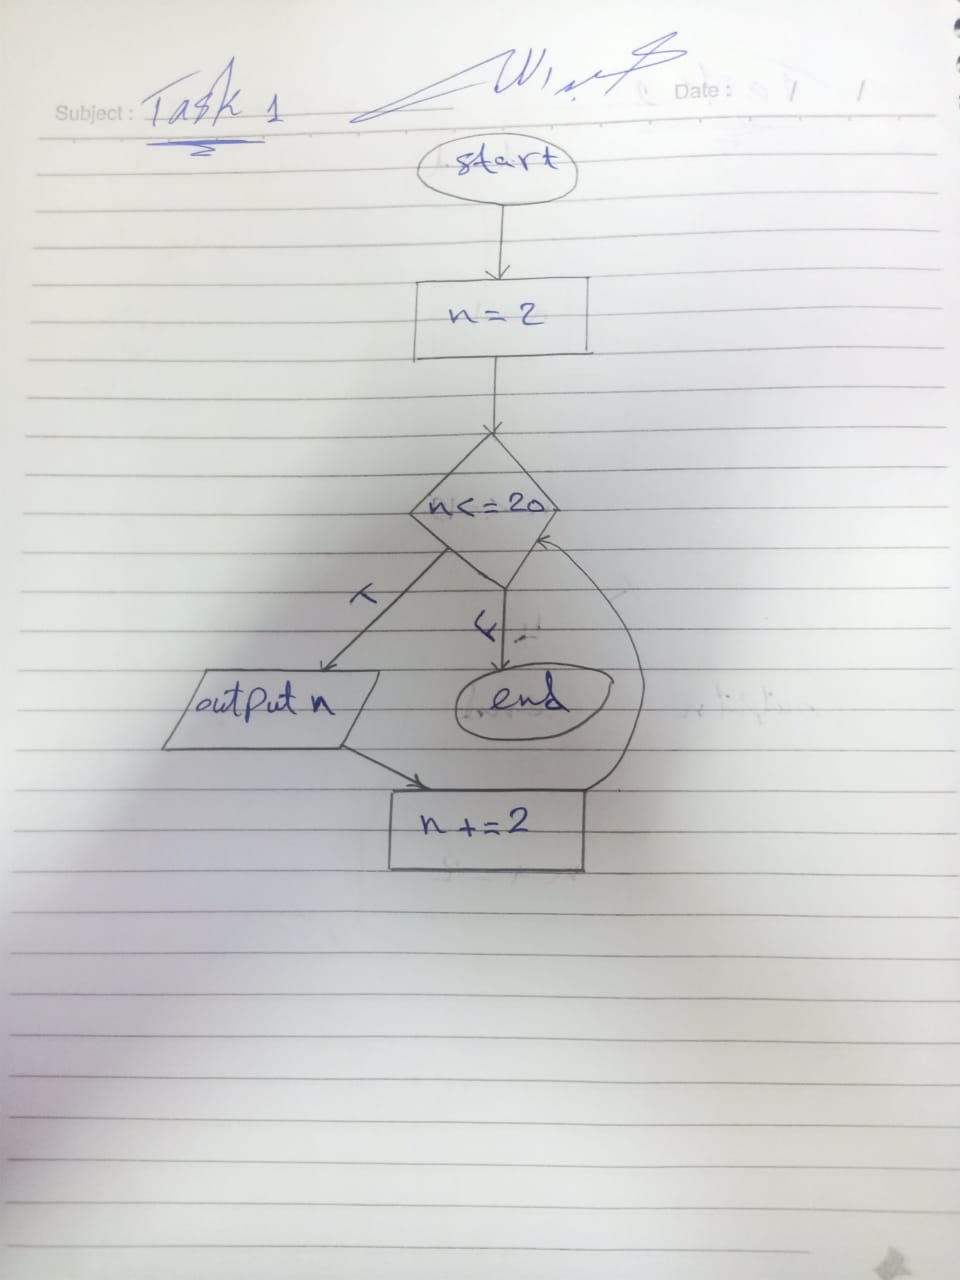 Subject : Task 1
Date : / /
start
n = 2
n <= 20
T
F
output n
end
n += 2